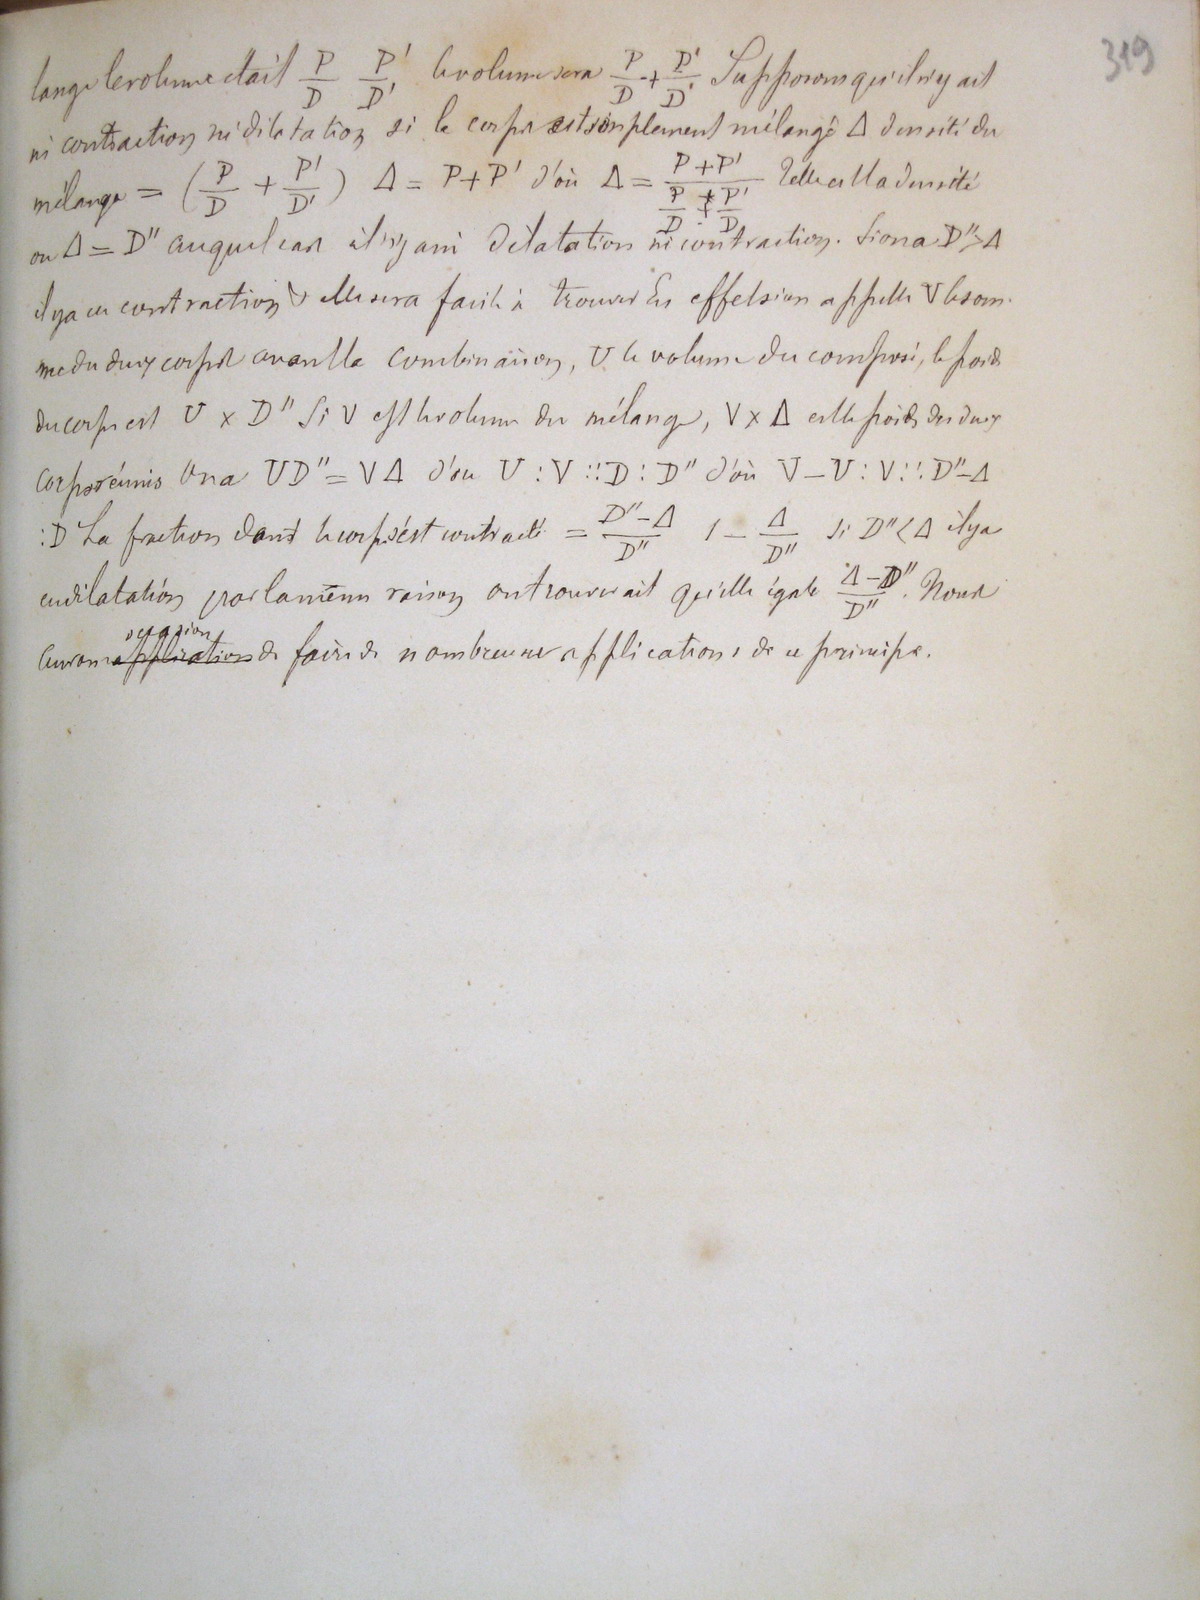 319
lange le volume était P/D P'/D', le volume sera P/D + P'/D' Supposons qu'il n'y ait
ni contraction ni dilatation si le corps est simplement mélangé Δ densité du
mélange = (P/D + P'/D') Δ = P+P' d'où Δ = (P+P')/(P/D + P'/D) Telle est la densité
ou Δ = D'' auquel cas il n'y a ni dilatation ni contraction. Si on a D'' > Δ
il y a eu contraction & elle sera facile à trouver En effet si on appelle V la som-
me du deux corps avant la combinaison, U le volume du composé, le poids
du corps est U × D'' Si V est le volume du mélange, V × Δ est le poids des deux
corps réunis On a UD'' = VΔ d'ou U : V :: D : D'' d'où V – U : V :: D'' – Δ
: D La fraction dont le corps s'est contracté = (D'' – Δ)/D'' 1 – Δ/D'' Si D'' < Δ il y a
eu dilatation par la même raison on trouverait qu'elle égale (Δ – D'')/D''. Nous
occasion
aurons application de faire de nombreuses applications de ce principe.